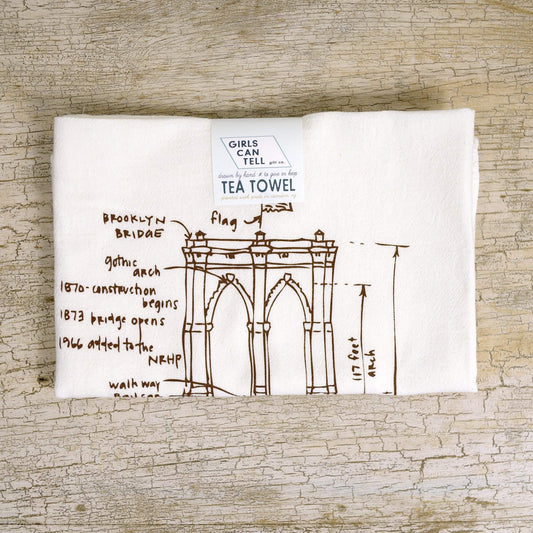 GIRLS
CAN
TELL
gift co.
drawn by hand & to give or keep
TEA TOWEL
BROOKLYN
BRIDGE
flag
gothic
arch
1870-construction
begins
1873 bridge opens
1966 added to the
NRHP
walk way
117 feet
arch